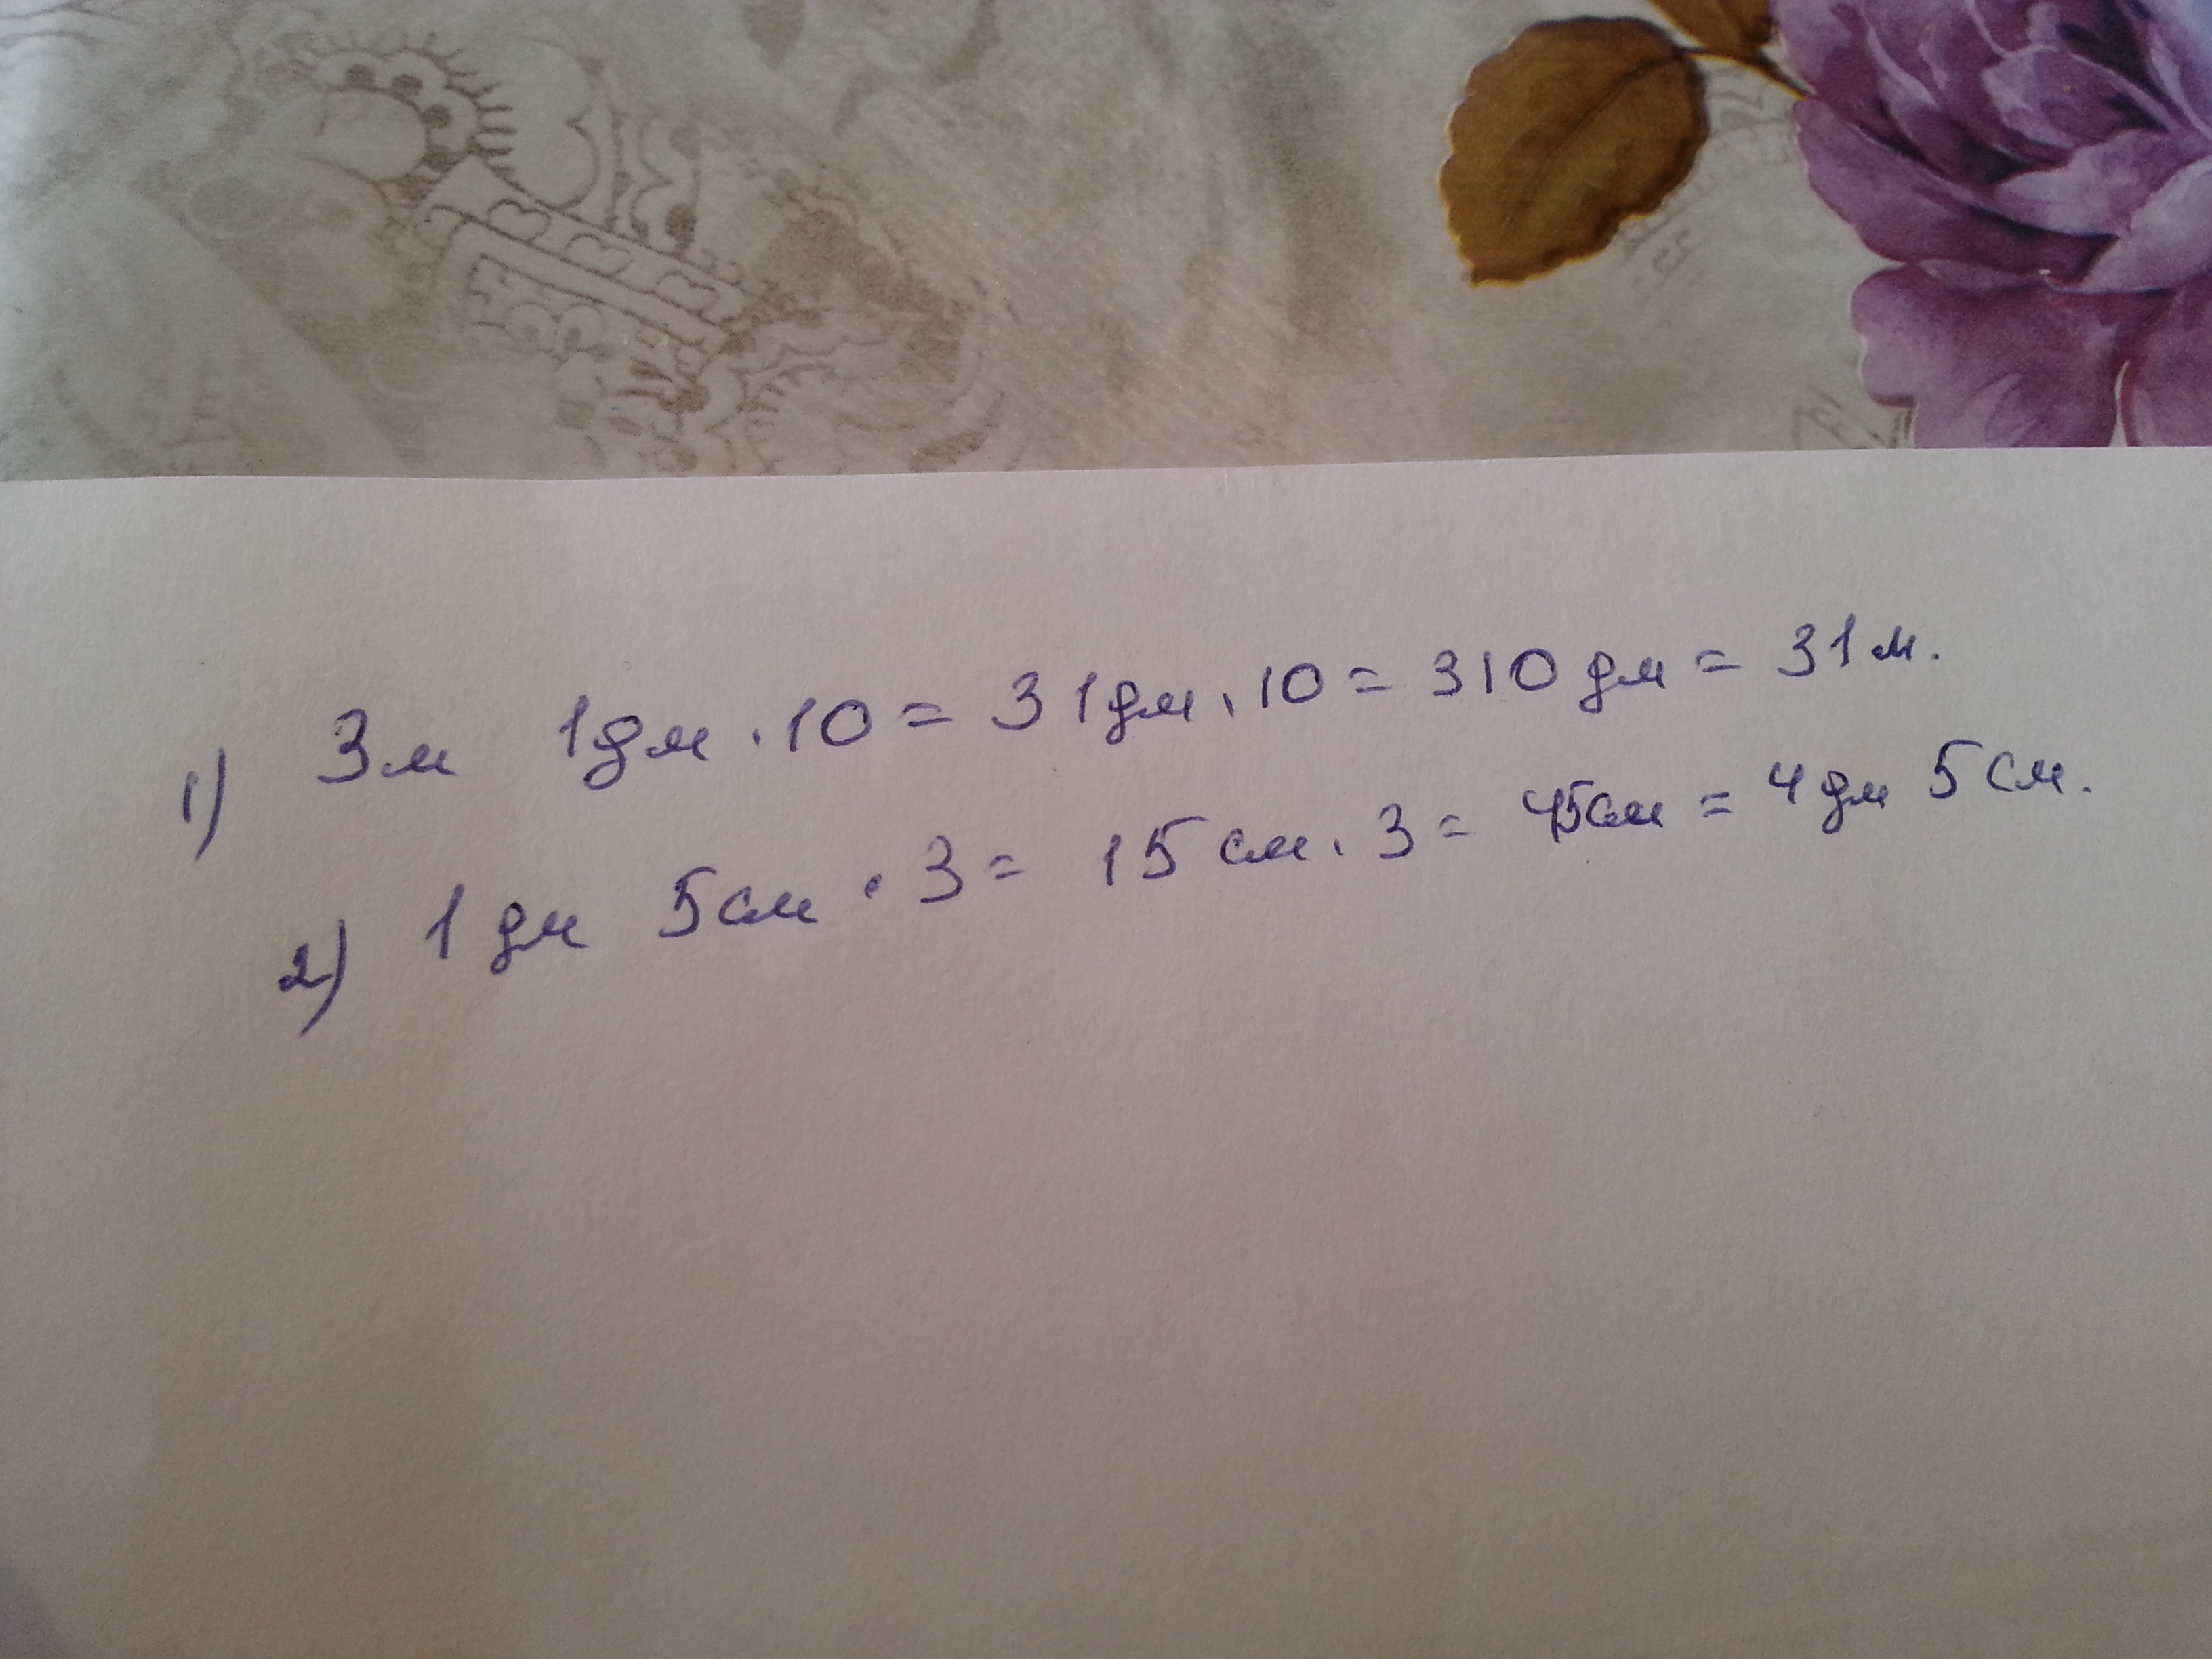 1) 3м 1дм · 10 = 31дм · 10 = 310 дм = 31 м.
2) 1 дм 5см · 3 = 15 см · 3 = 45см = 4 дм 5 см.